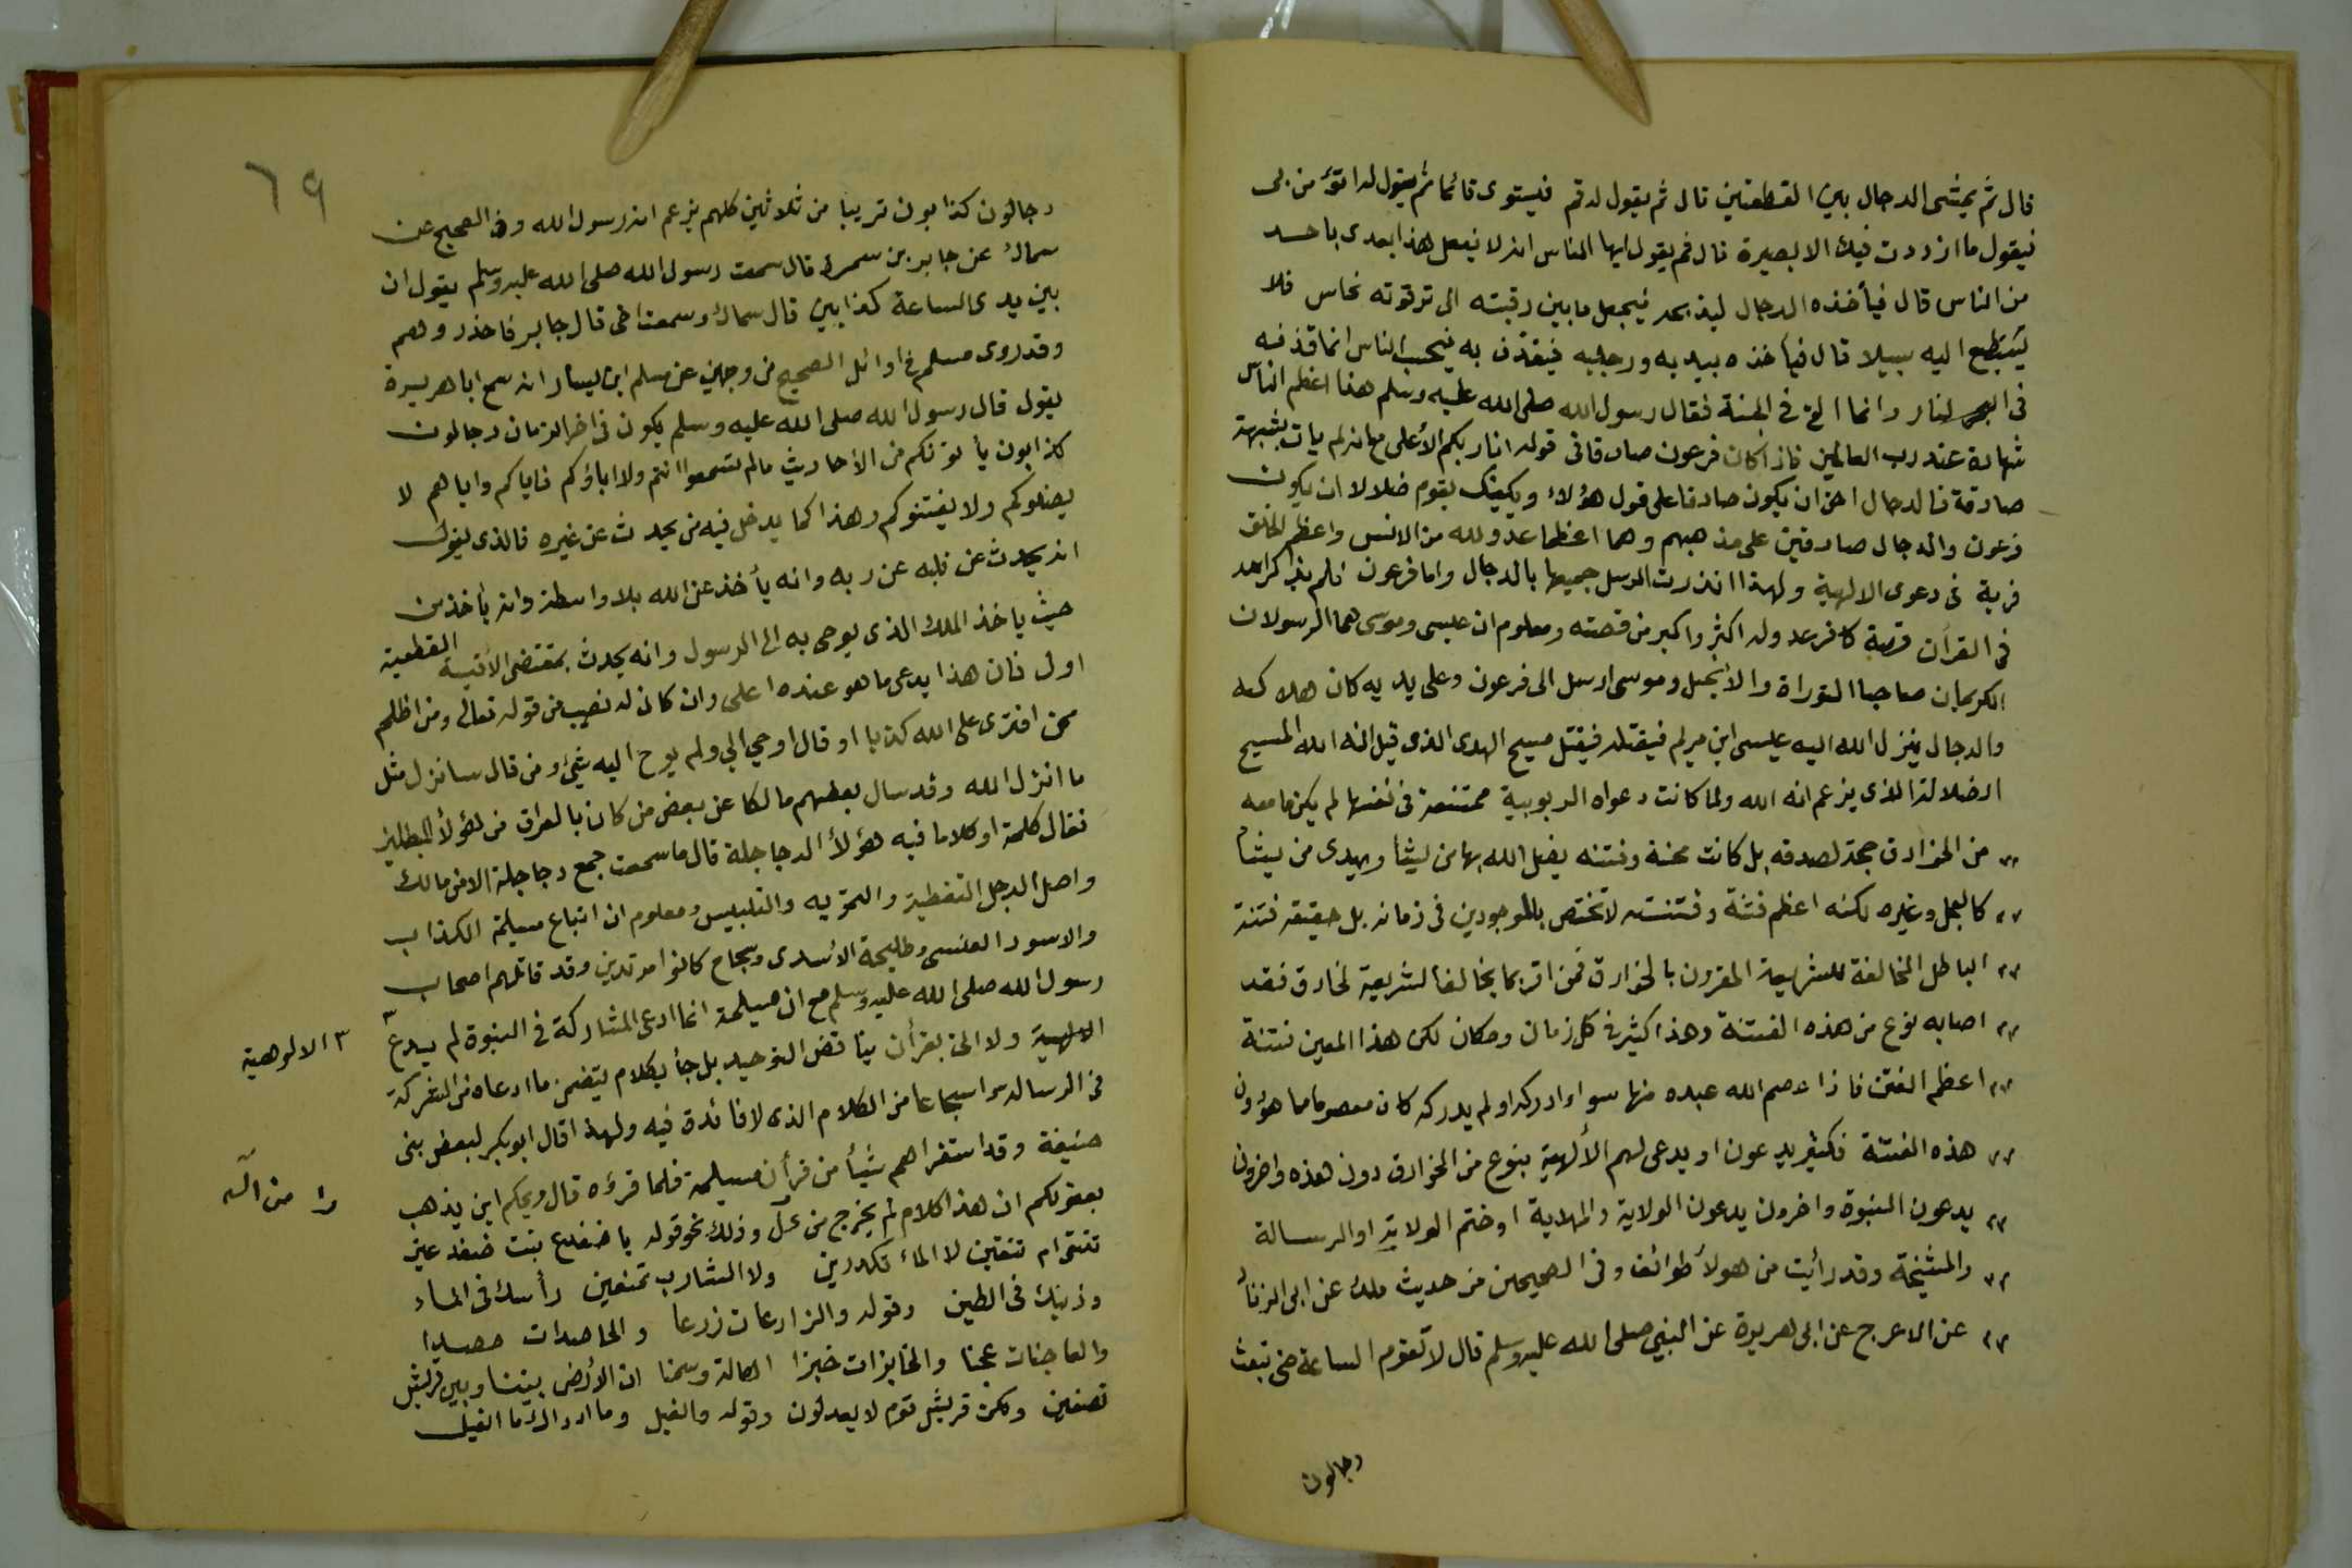 قال ثم يمشى الدجال بين القطعتين قال ثم يقول له قم فيستوى قائما ثم يقول له اتؤمن بى
فيقول ما ازددت فيك الا بصيرة قال ثم يقول ايها الناس انه لا يفعل هذا بعدى باحد
من الناس قال فيأخذه الدجال ليذبحه فيجعل ما بين رقبته الى ترقوته نحاس فلا
يستطيع اليه سبيلا قال فيأخذه بيديه ورجليه فيقذف به فيحسب الناس انما قذفه
فى النار وانما القى فى الجنة فقال رسول الله صلى الله عليه وسلم هذا اعظم الناس
شهادة عند رب العالمين فاذا كان فرعون صادقا فى قوله انا ربكم الأعلى مع انه لم يات بشبهة
صادقة فالدجال احق ان يكون صادقا على قول هؤلاء ويكفيك بقوم ضلالا ان يكون
فرعون والدجال صادقين على مذهبهم وهما اعظما عدو لله من الانس واعظم الخلق
فرية فى دعوى الالهية ولهذا انذرت الرسل جميعها بالدجال واما فرعون فلم يذكر الله
فى القرآن قصة كافر عدو له اكثر واكبر من قصته ومعلوم ان عيسى وموسى هما الرسولان
الكريمان صاحبا التوراة والأنجيل وموسى ارسل الى فرعون وعلى يديه كان هلاكه
والدجال ينزل الله اليه عيسى ابن مريم فيقتله فيقتل مسيح الهدى الذى قيل انه الله المسيح
الضلالة الذى يزعم انه الله ولما كانت دعواه الربوبية ممتنعة فى نفسها لم يكن ما معه
من الخوارق حجة لصدقه بل كانت محنة وفتنه يضل الله بها من يشأ ويهدى من يشأ
كالعجل وغيره لكنه اعظم فتنة وفتنته لا تختص بالموجودين فى زمانه بل حقيقة فتنة
الباطل المخالفة للشريعة المقرون بالخوارق فمن اقر بما يخالف الشريعة لخارق فقد
اصابه نوع من هذه الفتنة وهذا كثير فى كل زمان ومكان لكن هذا المعين فتنة
اعظم الفتن فاذا عصم الله عبده منها سواء ادركه او لم يدركه كان معصوما مما هو دون
هذه الفتنة فكثير يدعون او يدعى لهم الألهية بنوع من الخوارق دون هذه واخرون
يدعون النبوة واخرون يدعون الولاية والمهدية او ختم الولاية او الرسالة
والمشيخة وقد رأيت من هولأ طوائف وفى الصحيحين من حديث ملك عن ابى الزناد
عن الاعرج عن ابى هريرة عن النبي صلى الله عليه وسلم قال لا تقوم الساعة حتى تبعث
دجالون
٦٩
دجالون كذابون قريبا من ثلاثين كلهم يزعم انه رسول الله وفى الصحيح عن
سماك عن جابر بن سمرة قال سمعت رسول الله صلى الله عليه وسلم يقول ان
بين يدى الساعة كذابين قال سماك وسمعت اخى قال جابر فاحذروهم
وقد روى مسلم فى اوائل الصحيح من وجهين عن مسلم ابن يسار انه سمع ابا هريرة
يقول قال رسول الله صلى الله عليه وسلم يكون فى اخر الزمان دجالون
كذابون يأتونكم من الأحاديث مالم تسمعوا انتم ولا اباؤكم فاياكم واياهم لا
يضلوكم ولا يفتنوكم وهذا كما يدخل فيه من يحدث عن غيره فالذى يقول
انه يحدث عن قلبه عن ربه وانه يأخذ عن الله بلا واسطة وانه يأخذ من
حيث ياخذ الملك الذى يوحى به الى الرسول وانه يحدث بمقتضى الأقيسة القطعية
اولى فان هذا يدعى ما هو عنده اعلى وان كان له نصيب من قوله تعالى ومن اظلم
ممن افترى على الله كذبا او قال اوحي الي ولم يوح اليه شئ ومن قال سانزل مثل
ما انزل الله وقد سال بعضهم مالكا عن بعض من كان بالعراق من هؤلأ المبطلين
فقال كلمة او كلاما فيه هؤلأ الدجاجلة قال ما سمعت جمع دجاجلة الا من مالك
واصل الدجل التغطية والتمويه والتلبيس ومعلوم ان اتباع مسيلمة الكذاب
والاسود العنسى وطليحة الأسدى وسجاح كانوا مرتدين وقد قاتلهم اصحاب
رسول الله صلى الله عليه وسلم مع ان مسيلمة انما ادعى المشاركة فى النبوة لم يدع ٣
الالهية ولا اتى بقرأن يناقض التوحيد بل جأ بكلام يتضمن ما ادعاه من الشركة
٣ الالوهية
فى الرساله واسجاعا من الكلام الذى لا فائدة فيه ولهذا قال ابو بكر لبعض بنى
حنيفة وقد استقراهم شيأ من قرأن مسيلمة فلما قرؤه قال ويحكم اين يذهب
بعقولكم ان هذا كلام لم يخرج من عل وذلك نحو قوله يا ضفدع بنت ضفدعين
من آله
تنقى ام تنقين لا المأ تكدرين ولا الشارب تمنعين رأسك فى الماء
وذنبك فى الطين وقوله والزارعات زرعا والحاصدات حصدا
والعاجنات عجنا والخابزات خبزا اهالة وسمنا ان الأرض بيننا وبين قريش
نصفين ولكن قريش قوم لا يعدلون وقوله والفيل وما ادراك ما الفيل